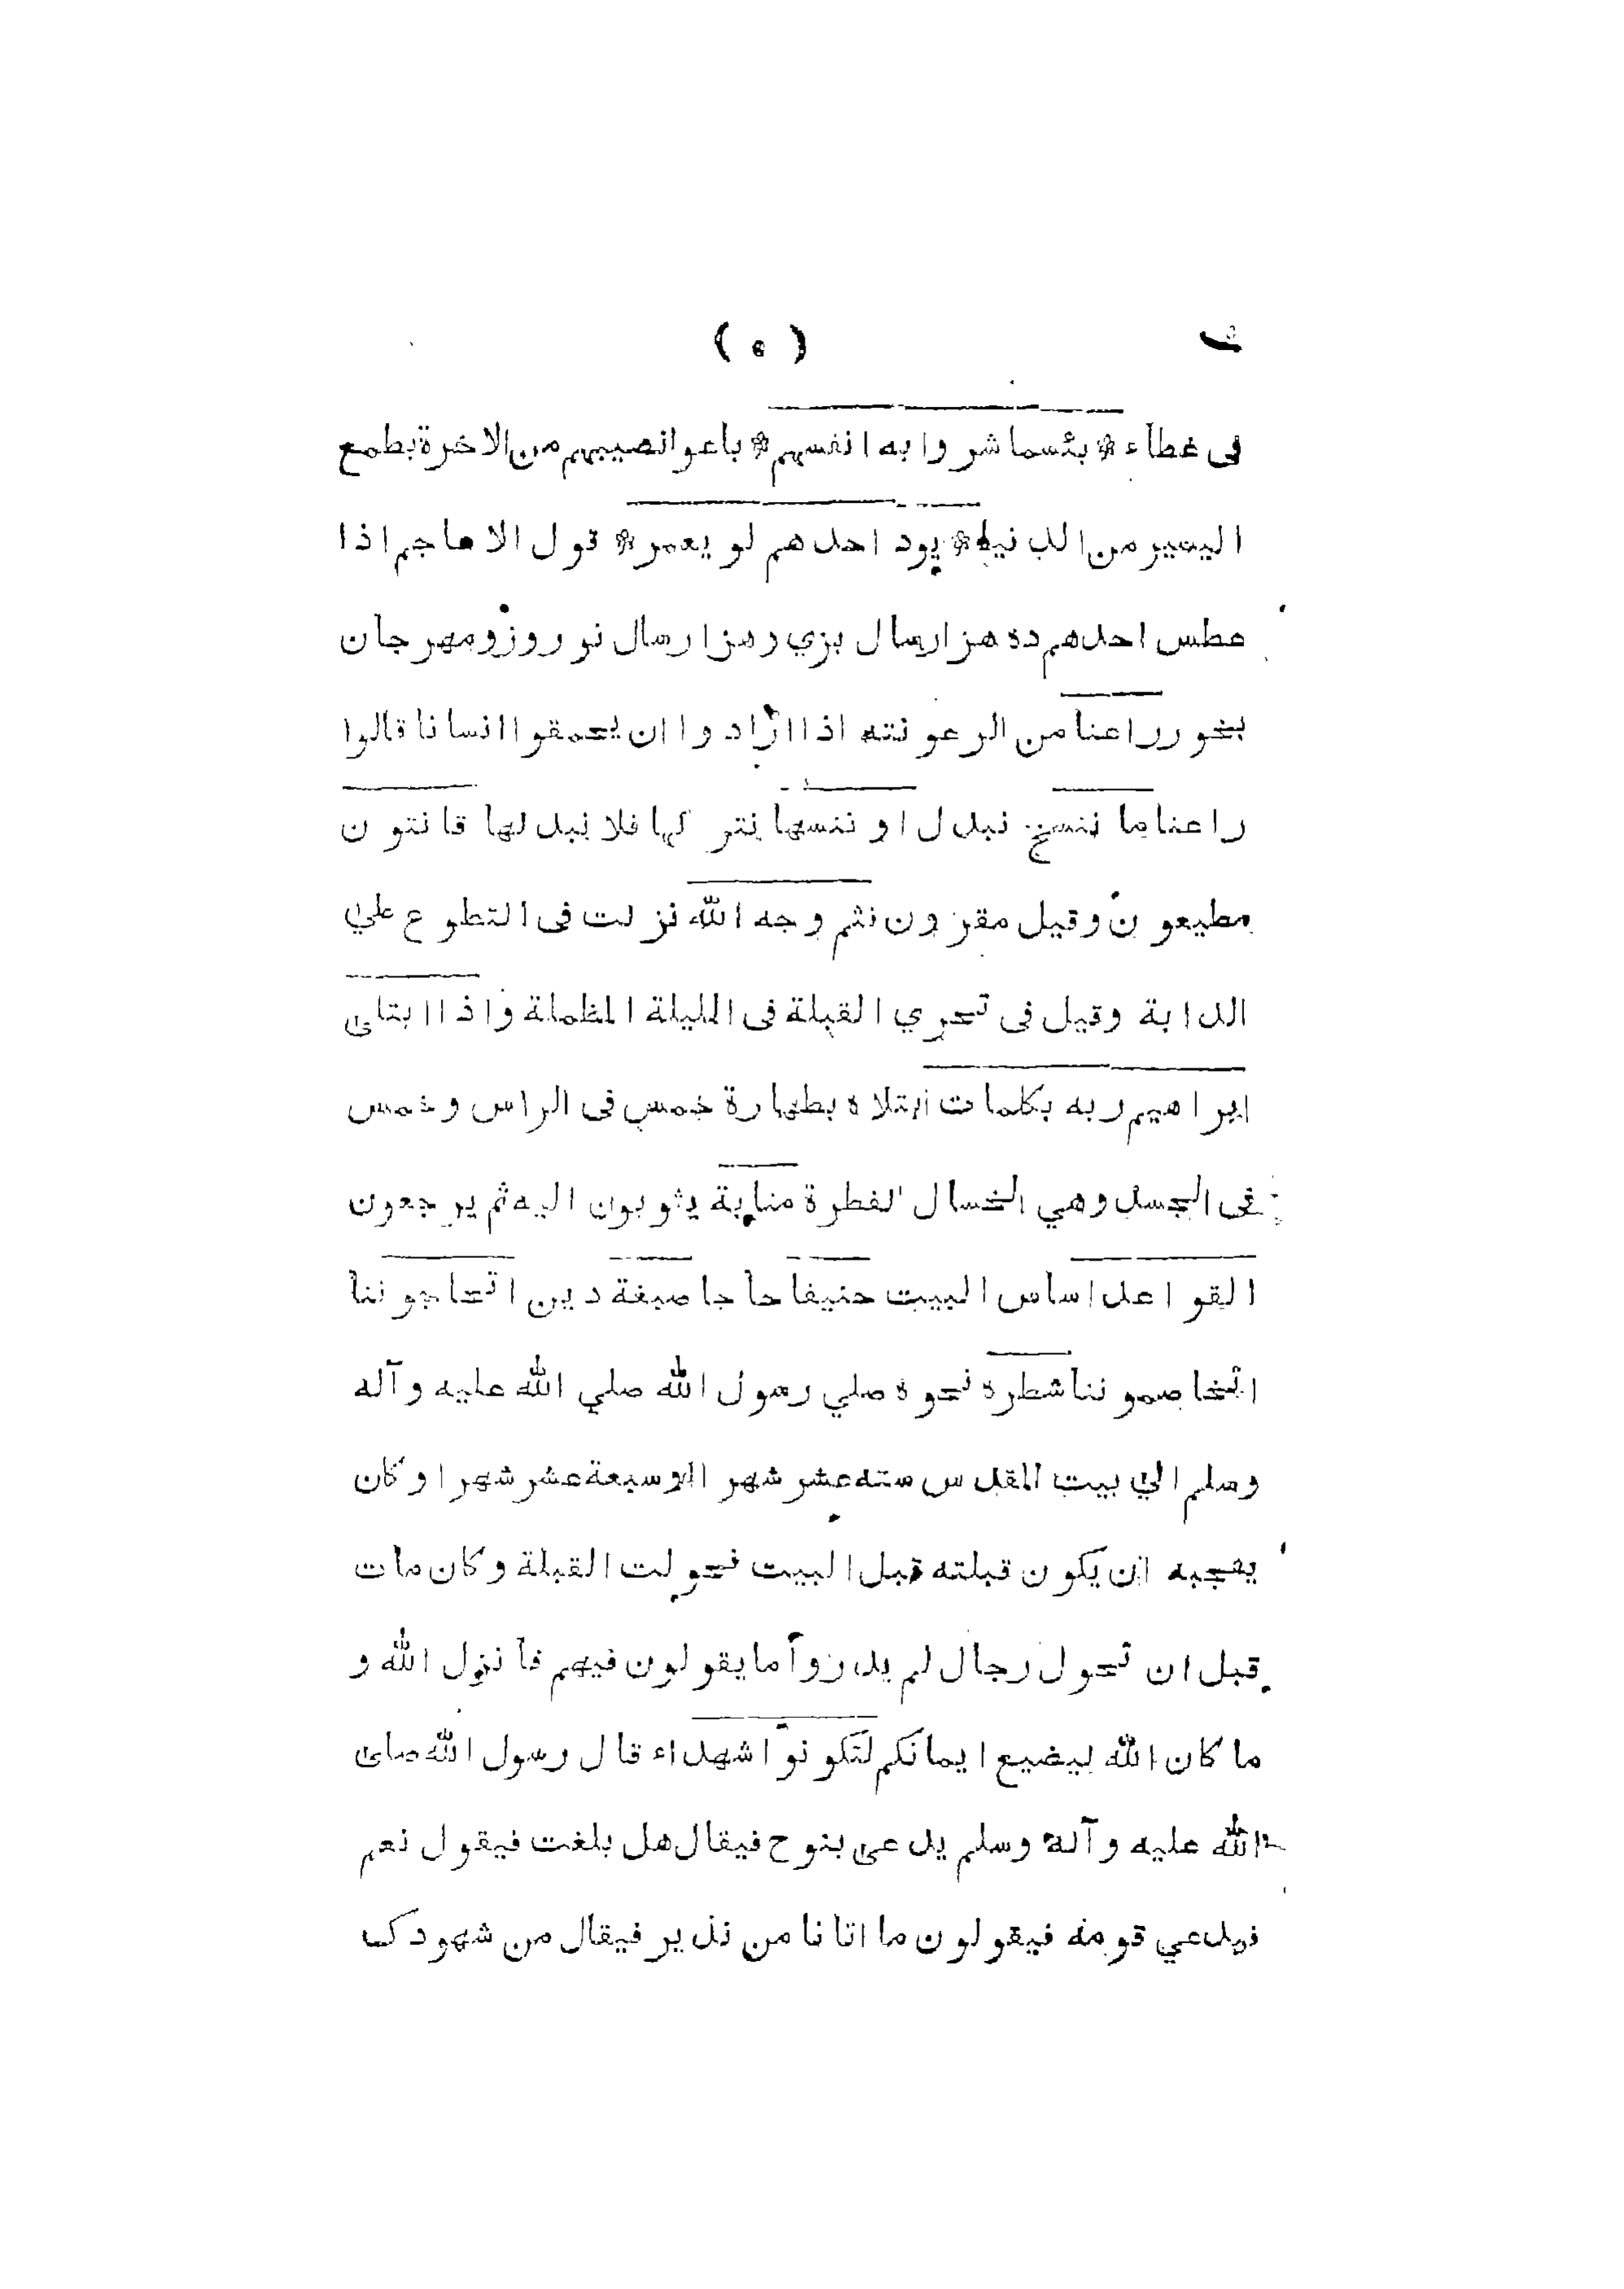 ( ٥ ) ف
فى غطاء * بئسما شروا به انفسهم * باعوا نصيبهم من الاخرة بطمع
اليسير من الدنيا * يود احدهم لو يعمر * قول الاعاجم اذا
عطس احدهم ده هزار سال بزي و هزار سال نو روز و مهرجان
بخور راعنا من الرعونته اذا اراد وا ان يحمقوا انسانا قالوا
راعنا ما ننسخ نبدل او ننسها نتركها فلا نبدلها قانتون
مطيعون وقيل مقرون فثم وجه الله نزلت فى التطوع علي
الدابة وقيل فى تحري القبلة فى الليلة المظملة واذا ابتلى
ابراهيم ربه بكلمات ابتلاه بطهارة خمس فى الراس و خمس
فى الجسد وهي الخسال الفطرة مثابة يثوبون اليه ثم يرجعون
القواعد اساس البيت حنيفا حاجا صبغة دين اتحاجوننا
اتخاصموننا شطره نحوه صلي رسول الله صلي الله عليه وآله
وسلم الي بيت المقدس سته عشر شهرا او سبعة عشر شهرا و كان
يعجبه ان يكون قبلته قبل البيت فحولت القبلة و كان مات
قبل ان تحول رجال لم يدروا ما يقولون فيهم فانزل الله و
ما كان الله ليضيع ايمانكم لتكونوا شهداء قال رسول الله صلى
الله عليه وآله وسلم يدعى بنوح فيقال هل بلغت فيقول نعم
فيدعي قومه فيقولون ما اتانا من نذير فيقال من شهودك